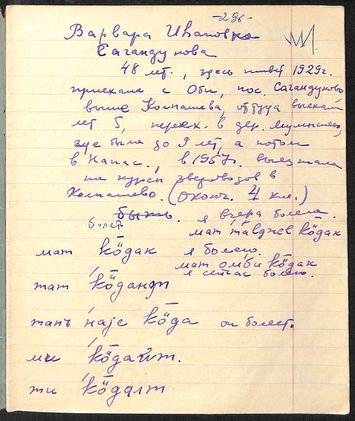 -296-
Варвара Ивановна
Сагандукова
48 лет., здесь живёт 1929г.
приехала с Оби, пос. Сагандуково
выше Колпашева, оттуда выехали
лет 5, переех. в дер.
где была до 9 лет, а потом
в Напас., в 1957г. выезжала
на курсы звероводов в
Колпашево. (оконч. 4 кл.)
быть я вчера болела.
болеть мат та̄вджев ко̄дак
мат ко̄дак я болею.
мат ко̄дак
я сейчас болею.
тат ко̄данды
тапъ наје ко̄да он болеет.
ми ко̄дайт.
ти ко̄далт